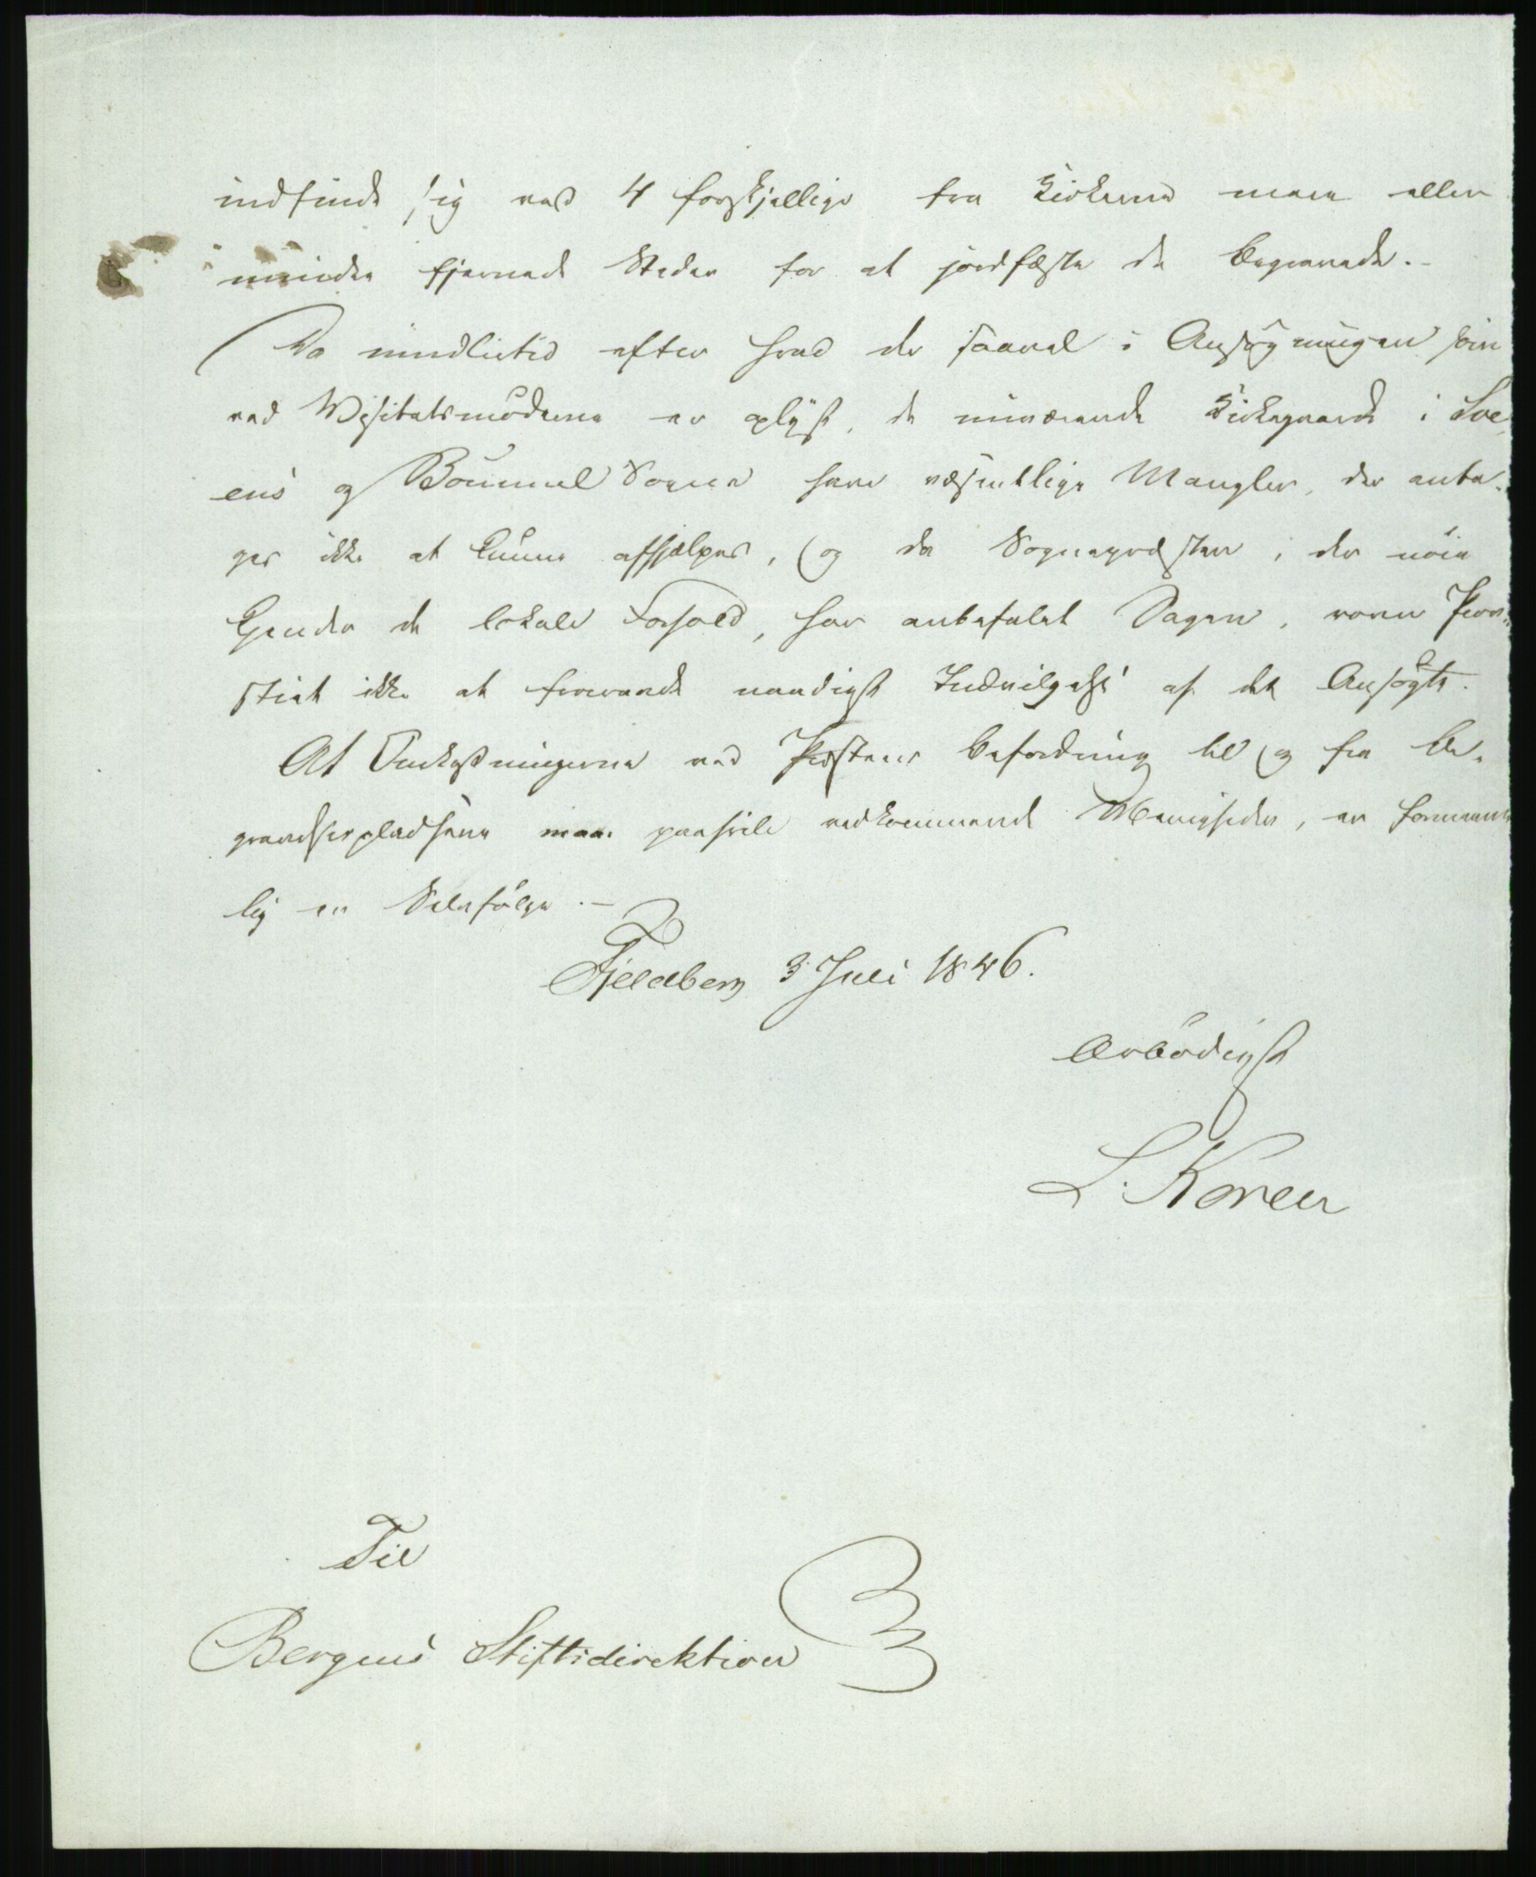 indfinde sig ved 4 forskjellige fra Kirkerne mere eller
mindre fjernede Steder for at jordfæste de Begravede.-
Da imidlertid efter hvad der saavel i Ansøgningen som
ved Visitatsmøderne er oplyst, de nuværende Kirkegaarde i Sve,
ens og Bømmel Sogne have væsentlige Mangler, der anta-
ges ikke at kunne afhjælpes, og da Sognepræsten, der nøie
kjender de lokale Forhold, har anbefalet Sagen,
stiet ikke at fraraade naadigst Indvilgelse af det Ansøgte.
At Omkostningerne ved Præstens Befordring til og fra Be-
gravelsespladsene maa paahvile vedkommende Menigheder, er formeent-
lig en Selvfølge.-
Fjeldberg 3 Juli 1846.
Ærbødigst
L. Koren
Til
Bergens Stiftsdirektion